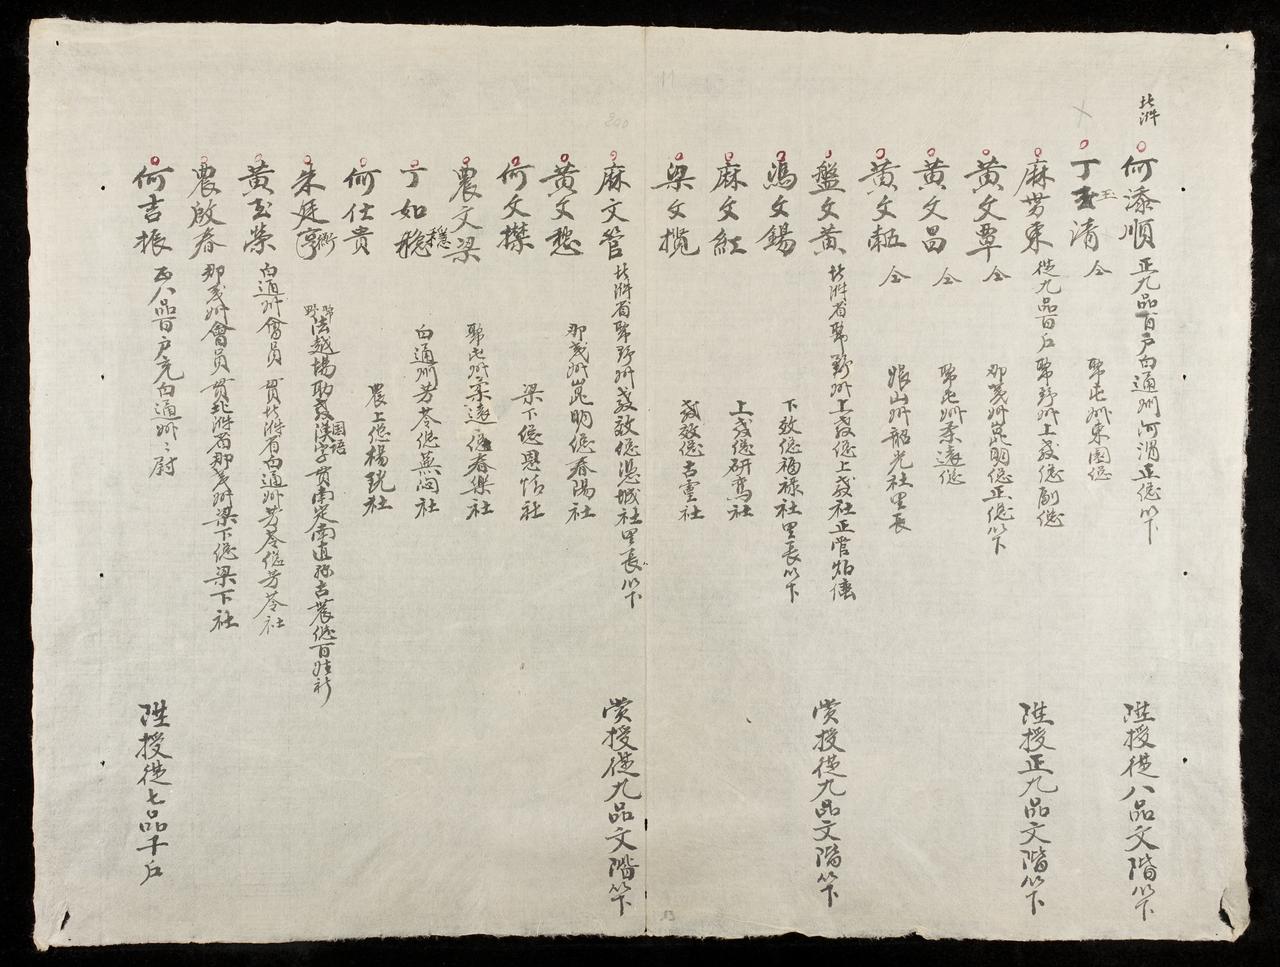 北泮
何添順 正九品百户白通州河渭正總以下 陞授從八品文階以下
丁玉清 仝 聚屯州東圍總
麻芳東 從九品百户 聚野州上教總副總 陞授正九品文階以下
黄文覃 仝 那茂州崑明總正總以下
黄文昌 仝 聚屯州柔遠總
黄文 仝 娘山州韶光社里長
盤文黄 北泮省聚野州上教總上教社正管 賞授從九品文階以下
馮文錫 下效總福禄社里長以下
麻文紅 上教總研鸞社
梁文攬 教效總古靈社
麻文管 北泮省聚野州教效總憑城社里長以下 賞授從九品文階以下
黄文愁 那茂州崑明總春陽社
何文襟 梁下總恩恬社
農文梁 聚屯州柔遠總春樂社
丁如穩 穩 白通州芳苓總英閟社
何仕貴 農上總楊貌社
朱廷 法越場助教漢字国語 貫南定南直 古農總百姓
黄玉榮 白通州會員 貫北泮省白通州芳苓總芳苓社
農啟春 那茂州會員 貫北泮省那茂州梁下總梁下社
何吉振 正八品百户充白通州州尉 陞授從七品千户